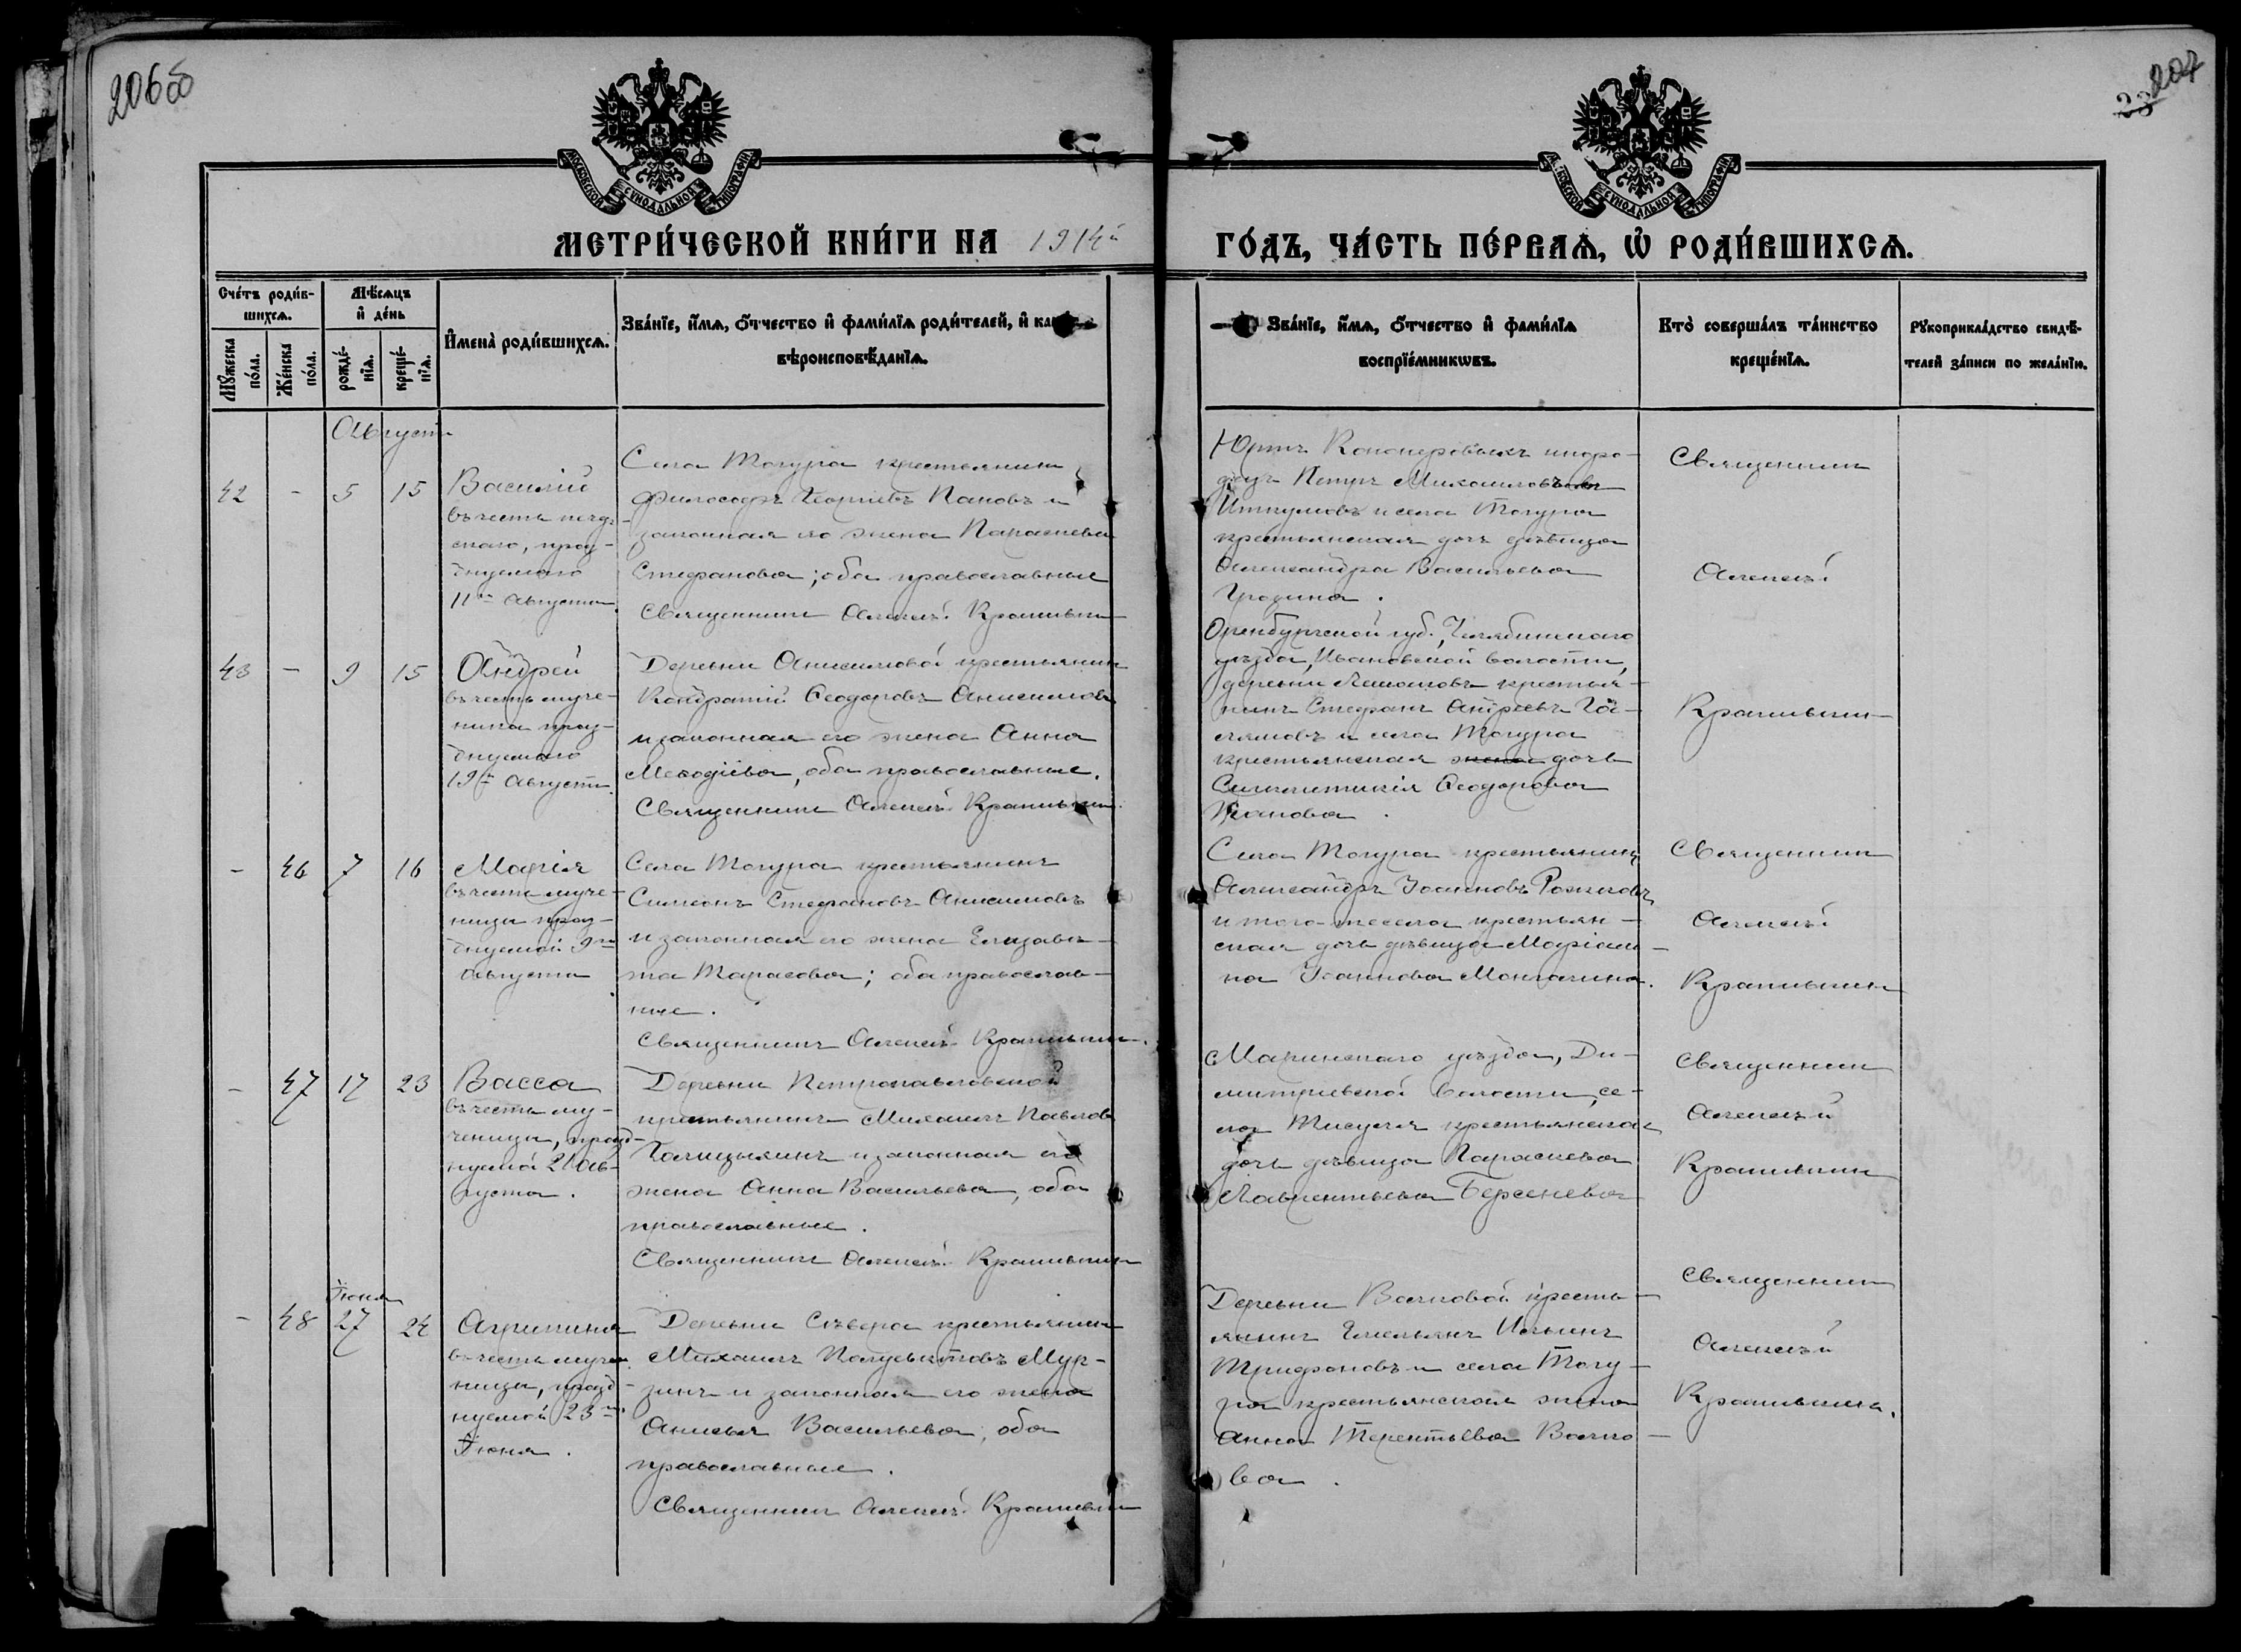 206об
207
23
МОСКОВСКОЙ СѴНОДАЛЬНОЙ ТИПОГРАФІИ
МОСКОВСКОЙ СѴНОДАЛЬНОЙ ТИПОГРАФІИ
МЕТРИ́ЧЕСКОЙ КНИ́ГИ НА 1914й
ГО́ДЪ, ЧА́СТЬ ПЕ́РВАѦ, Ѡ҆ РОДИ́ВШИХСѦ.
Сче́тъ роди́в-
шихсѧ.
Мѣ́сѧцъ
и҆ де́нь
Мꙋ́жеска
по́ла.
Же́нска
по́ла.
рожде́-
нїѧ.
креще́-
нїѧ.
И҆мена̀ роди́вшихсѧ.
Зва́нїе, и҆́мѧ, ѻ҆́тчество и҆ фами́лїѧ роди́телей, и҆ ка
вѣроисповѣ́данїѧ.
Зва́нїе, и҆́мѧ, ѻ҆́тчество и҆ фами́лїѧ
воспрїе́мникѡвъ.
Кто̀ соверша́лъ та́инство
креще́нїѧ.
Рꙋкоприкла́дство свидѣ́-
телей за́писи по жела́нїю.
Августъ
42 - 5 15
Василій
въ честь
праз-
днуемаго
11го Августа.
Села Тогура крестьянинъ
Философъ Георгіевъ Пановъ и
законная его жена Параскева
Стефанова; оба православные
Священникъ Алексѣй Крапивкин
Юртъ иноро-
децъ Петръ Михаиловъ
и села Тогура
крестьянская дочь дѣвица
Александра Васильева
Родина.
Священникъ
Алексѣй
43 - 9 15
Андрей
въ честь муче-
ника праз-
днуемаго
19го Августа.
Деревни Анисимовой крестьянинъ
Кондратій Ѳеодоровъ Анисимовъ
и законная его жена Анна
Меѳодіева, оба православные.
Священникъ Алексѣй Крапивкин
Оренбургской губ., Челябинскаго
уѣзда, Ивановской волости,
деревни крестья-
нинъ Стефанъ Андреевъ
и села Тогура
крестьянская дочь
Синклитикія Ѳеодорова
Панова.
Крапивкин
- 46 7 16
Марія
въ честь муче-
ницы праз-
днуемой 9го
Августа
Села Тогура крестьянинъ
Симеонъ Стефановъ Анисимовъ
и законная его жена Елизаве-
та Тарасова; оба православ-
ные.
Священникъ Алексѣй Крапивкин.
Села Тогура крестьянинъ
Александръ Іоанновъ Рожковъ
и того-же села крестьян-
ская дочь дѣвица Маріам-
на Іоаннова Монгалина.
Священникъ
Алексѣй
Крапивкин
- 47 17 23
Васса
въ честь му-
ченицы, празд-
нуемой 21 Ав-
густа.
Деревни Петропавловской
крестьянинъ Михаилъ Павловъ
Галицынъ и законная его
жена Анна Васильева, оба
православные.
Священникъ Алексѣй Крапивкин
Маріинскаго уѣзда, Ди-
митріевской волости, се-
ла Тисуля крестьянская
дочь дѣвица Параскева
Лаврентьева Берсенева
Священникъ
Алексѣй
Крапивкин
Іюня
- 48 27 24
Агрипина
въ честь муче-
ницы, празд-
нуемой 23го
Іюня.
Деревни Сѣвера крестьянинъ
Михаилъ Полуевктовъ Мур-
зинъ и законная его жена
Анисья Васильева, оба
православные.
Священникъ Алексѣй Крапивкин
Деревни Волковой кресть-
янинъ Емельянъ Ильинъ
Трифоновъ и села Тогу-
ра крестьянская жена
Анна Терентьева Волко-
ва.
Священникъ
Алексѣй
Крапивкинъ.